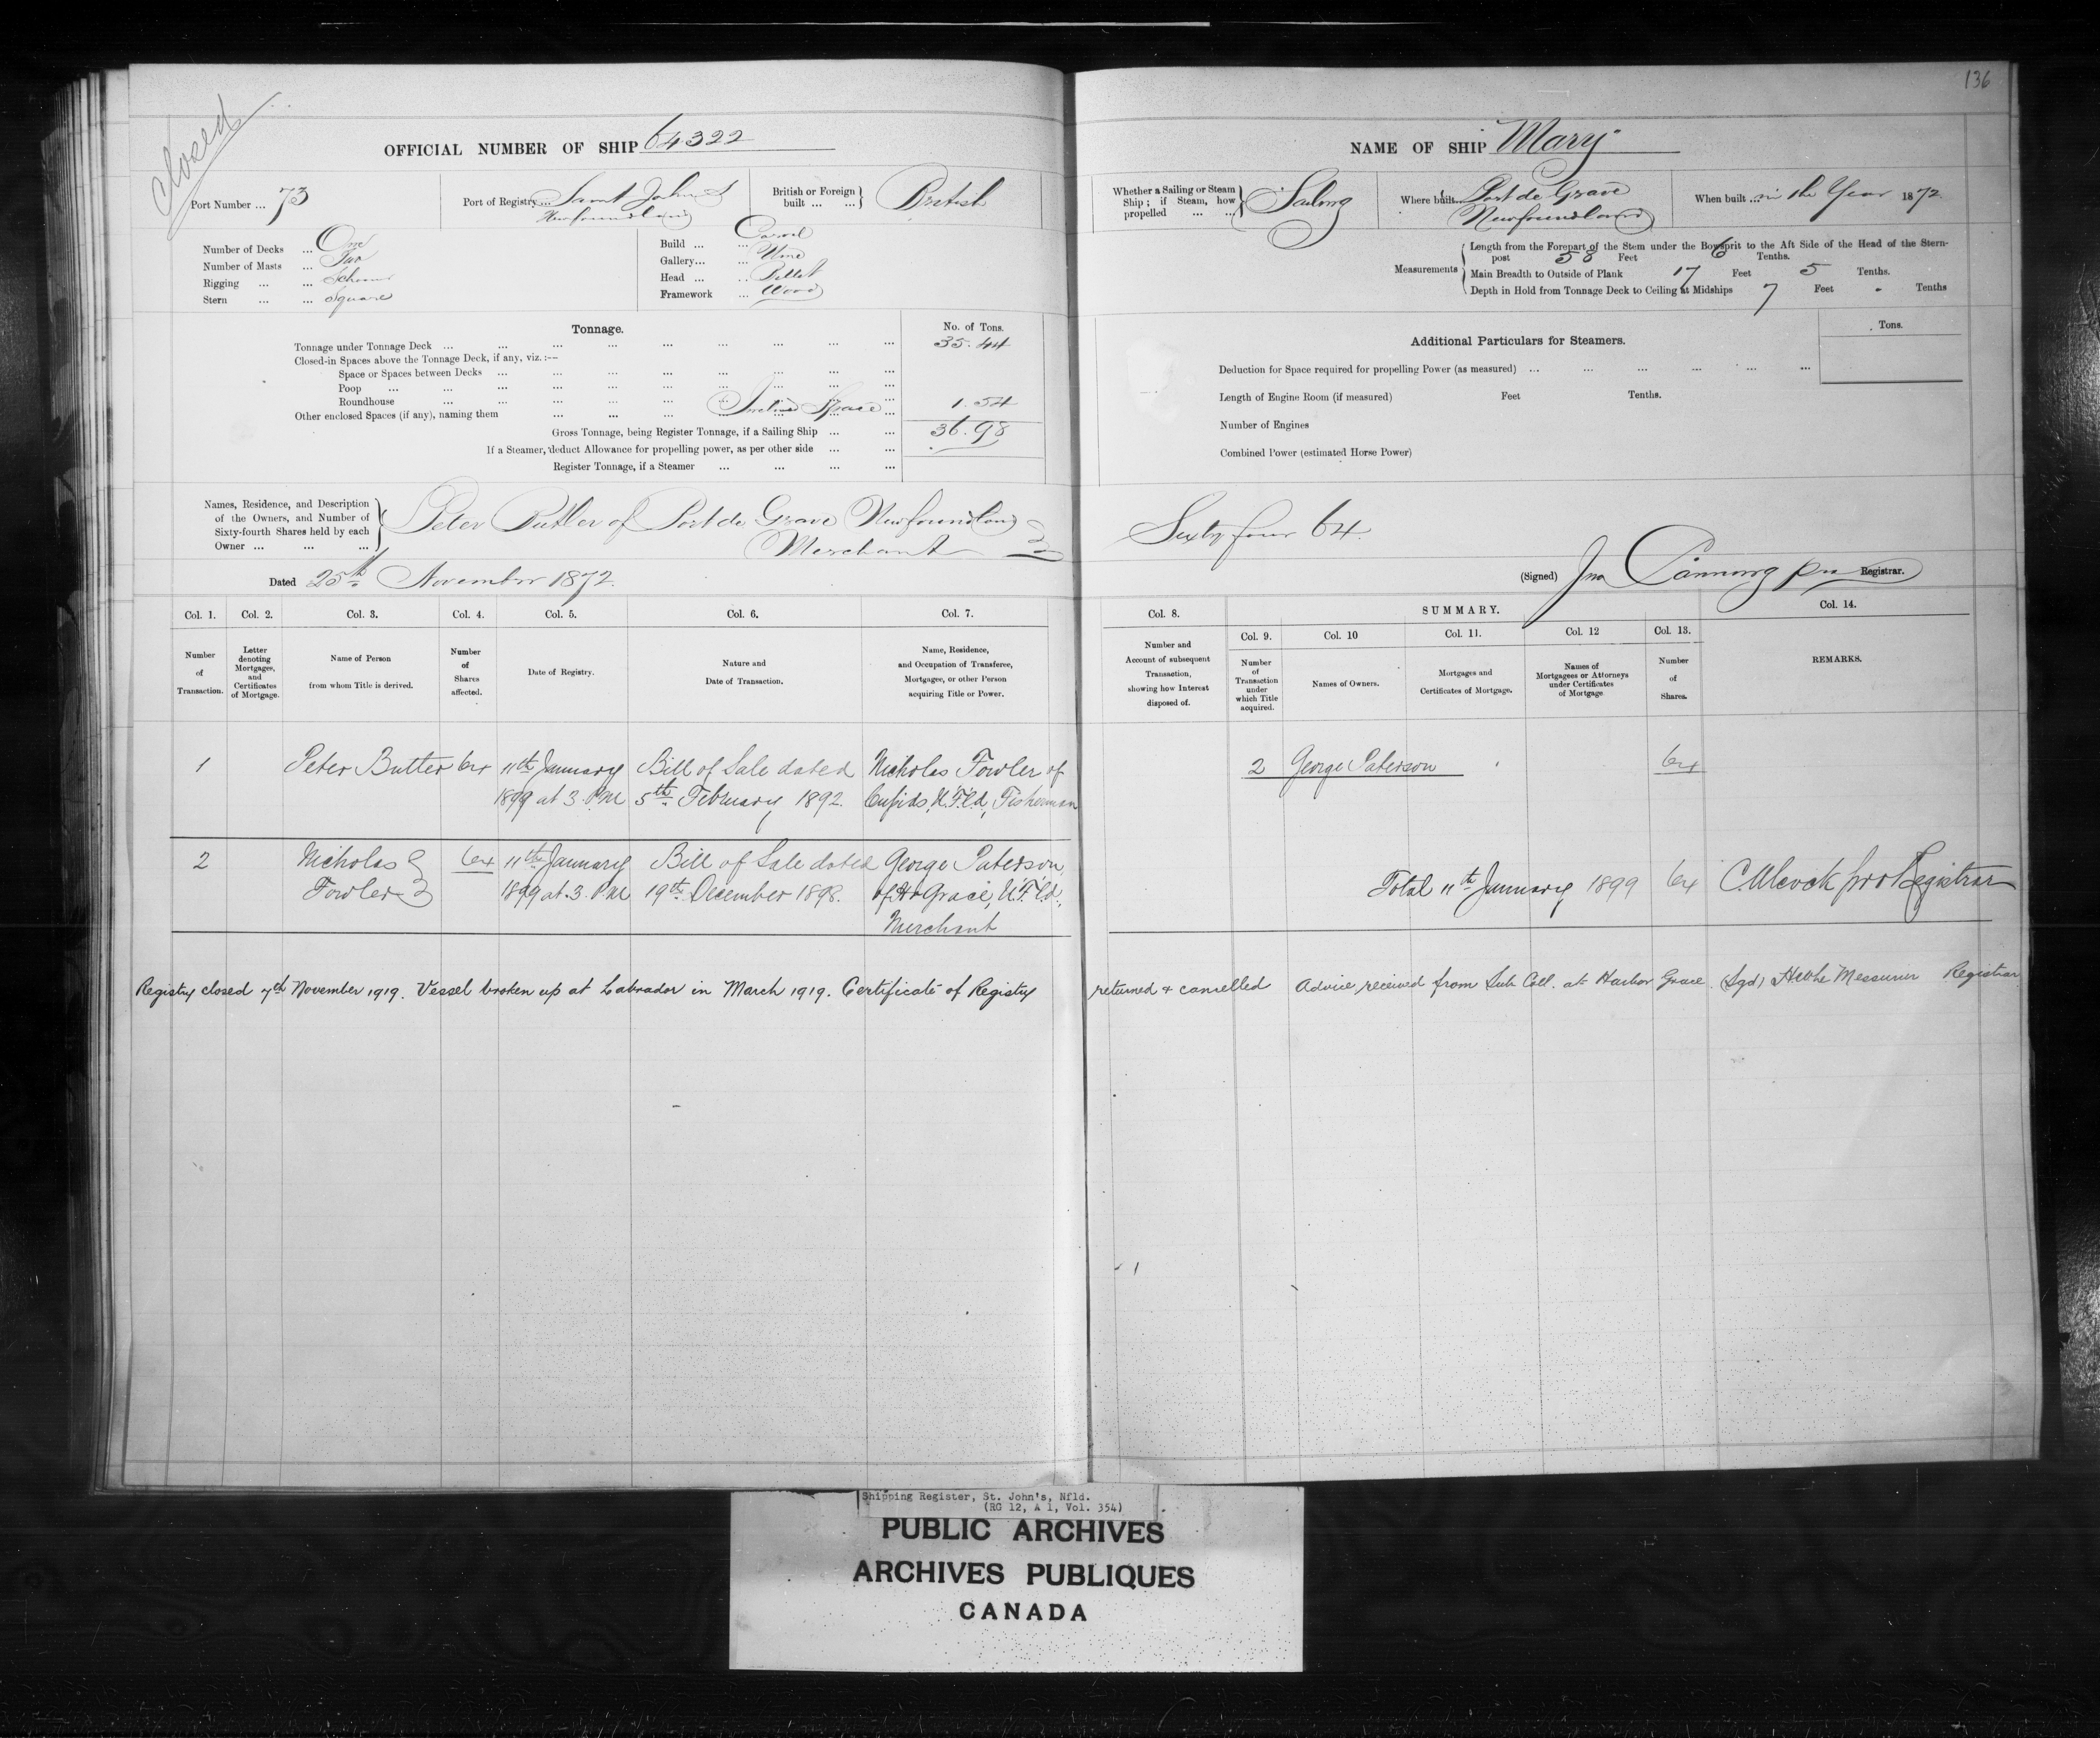 closed
136
OFFICIAL NUMBER OF SHIP 64322
NAME OF SHIP Mary
Port Number ... 73
Port of Registry ... Saint John's
Newfoundland
British or Foreign built ... ... British
Whether a Sailing or Steam Ship; if Steam, how propelled ... ... Sailing
Where built ... Port de Grave
Newfoundland
When built ... in the Year 1872
Number of Decks ... One
Number of Masts ... Two
Rigging ... ... Schooner
Stern ... ... Square
Build ... ... Carvel
Gallery... ...
Head ... ...
Framework ... Wood
Measurements
Length from the Forepart of the Stem under the Bowsprit to the Aft Side of the Head of the Stern-
post 58 Feet 6 Tenths.
Main Breadth to Outside of Plank 17 Feet 5 Tenths.
Depth in Hold from Tonnage Deck to Ceiling at Midships 7 Feet " Tenths
Tonnage.
No. of Tons.
Tonnage under Tonnage Deck ... 35.44
Closed-in Spaces above the Tonnage Deck, if any, viz. :—
Space or Spaces between Decks ...
Poop ...
Roundhouse ...
Other enclosed Spaces (if any), naming them ... Space ... 1.54
Gross Tonnage, being Register Tonnage, if a Sailing Ship ... 36.98
If a Steamer, deduct Allowance for propelling power, as per other side ...
Register Tonnage, if a Steamer ...
Tons.
Additional Particulars for Steamers.
Deduction for Space required for propelling Power (as measured) ...
Length of Engine Room (if measured) Feet Tenths.
Number of Engines
Combined Power (estimated Horse Power)
Names, Residence, and Description
of the Owners, and Number of
Sixty-fourth Shares held by each
Owner ... ... ...
Peter Butler of Port de Grave Newfoundland
Merchant
Sixty four 64
Dated 25th November 1872.
(Signed) Jno Canning pro Registrar.
Col. 1. Col. 2. Col. 3. Col. 4. Col. 5. Col. 6. Col. 7.
Number of Transaction.
Letter denoting Mortgages, and Certificates of Mortgage.
Name of Person from whom Title is derived.
Number of Shares affected.
Date of Registry.
Nature and Date of Transaction.
Name, Residence, and Occupation of Transferee, Mortgagee, or other Person acquiring Title or Power.
Col. 8.
SUMMARY.
Col. 9. Col. 10 Col. 11. Col. 12 Col. 13.
Col. 14.
Number and Account of subsequent Transaction, showing how Interest disposed of.
Number of Transaction under which Title acquired.
Names of Owners.
Mortgages and Certificates of Mortgage.
Names of Mortgagees or Attorneys under Certificates of Mortgage
Number of Shares.
REMARKS.
1 Peter Butler 64 11th January Bill of Sale dated Nicholas Fowler of
1899 at 3. PM 5th February 1892. Cupids, N.F.l.d, Fisherman
2 George Paterson 64
2 Nicholas 64 11th January Bill of Sale dated George Paterson,
Fowler 1899 at 3. PM 19th December 1898. of Hr Grace, N.F.l.d,
Merchant
Total 11th January 1899 64 C Alcock pro Registrar
Registry closed 7th November 1919. Vessel broken up at Labrador in March 1919. Certificate of Registry
returned & cancelled Advice received from Sub Coll. at Harbor Grace (Sgd) H LeMessurier Registrar
Shipping Register, St. John's, Nfld.
(RG 12, A 1, Vol. 354)
PUBLIC ARCHIVES
ARCHIVES PUBLIQUES
CANADA